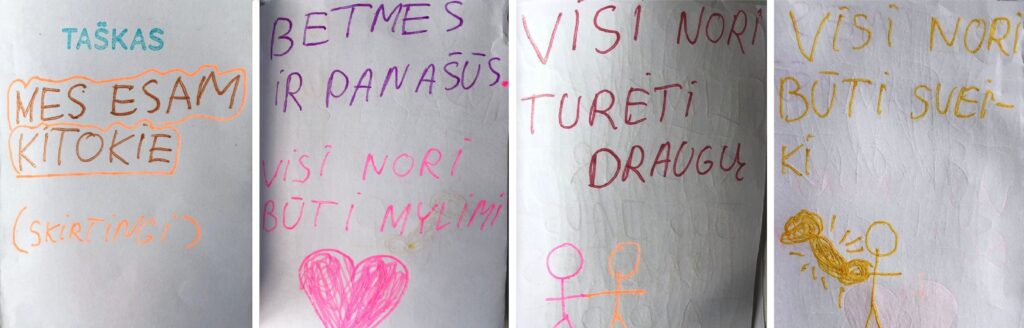 TAŠKAS
MES ESAM
KITOKIE
(SKIRTINGI)
BETMES
IR PANAŠŪS.
VISI NORI
BŪTI MYLIMI
VISI NORI
TURĖTI
DRAUGŲ
VISI NORI
BŪTI SVEI-
KI